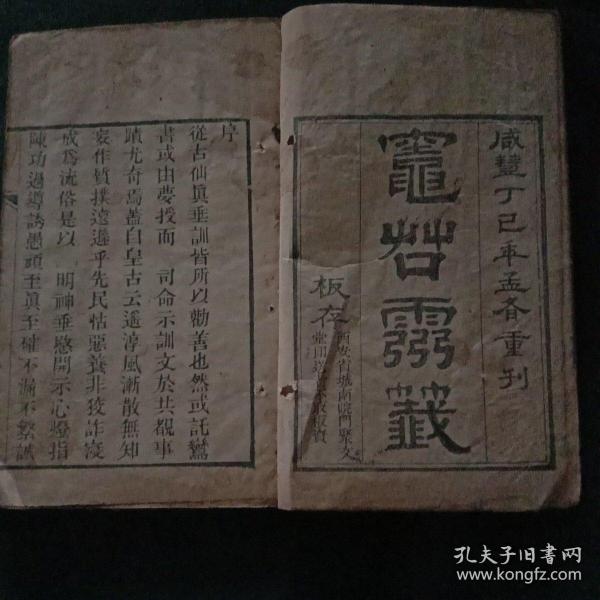 咸豐丁巳年孟春重刊
竈君靈籤
板存
西安省城南院門聚文
序
從古仙眞垂訓皆所以勸善也然或託鸞
書或由夢授而 司命示訓文於共覩事
蹟尤奇焉蓋自皇古云遥淳風漸散無知
妄作質撲遠遜乎先民怙惡養非狡詐寖
成爲流俗是以 明神垂愍開示心燈指
陳功過導誘愚頑至眞至確不漏不繁誠
孔夫子旧书网
www.kongfz.com